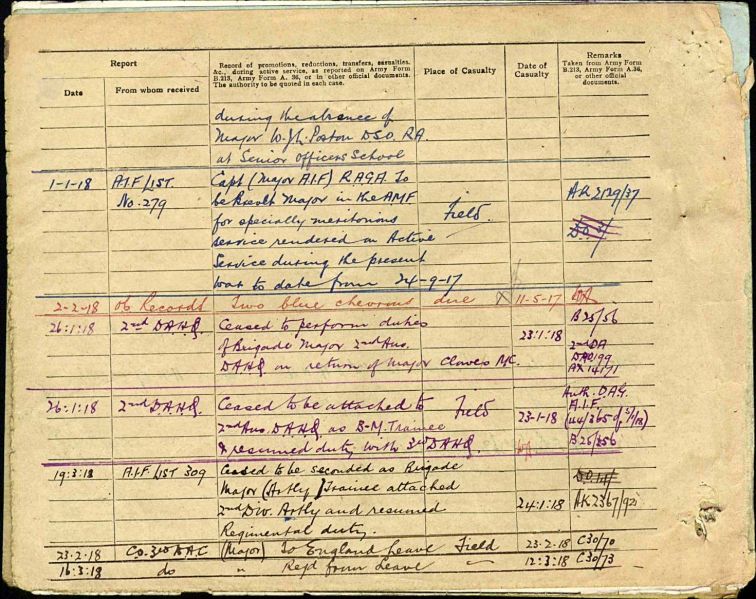 Report
Date
From whom received
Record of promotions, reductions, transfers, casualties,
&c., during active service, as reported on Army Form
B.213, Army Form A. 36, or in other official documents.
The authority to be quoted in each case.
Place of Casualty
Date of
Casualty
Remarks
Taken from Army Form
B.213, Army Form A.36,
or other official
documents.
during the absence of
Major W.J.L. Poston DSO. RA.
at Senior Officers School
1-1-18 A.I.F. LIST. Capt (Major A.I.F) R.A.G.A. To
No. 279 be Brevet Major in the AMF AR 2129/37
for specially meritorious Field.
service rendered on Active
Service during the present
War to date from 24-9-17
2-2-18 o/c Records Two blue chevrons due 11-5-17
26:1:18 2nd DAHQ. Ceased to perform duties B25/56
of Brigade Major 2nd Aus. 23:1:18 2nd DA
DAHQ on return of Major Clowes MC. DAO/99
AX 14171
26:1:18 2nd DAHQ. Ceased to be attached to Field Auth. DAG.
2nd Aus. DAHQ as B-M. Trainee 23-1-18 A.I.F.
& resumed duty with 3rd DAHQ. B25/856
19:3:18 A.I.F. LIST 309 Ceased to be seconded as Brigade
Major (Artly) Trainee attached
2nd Div. Artly and resumed 24:1:18 AR 2367/92
Regimental duty.
23-2-18 C.O. 3rd DAC (Major) To England Leave Field 23-2-18 C30/70
16:3:18 do " Rejd from Leave 12:3:18 C30/73